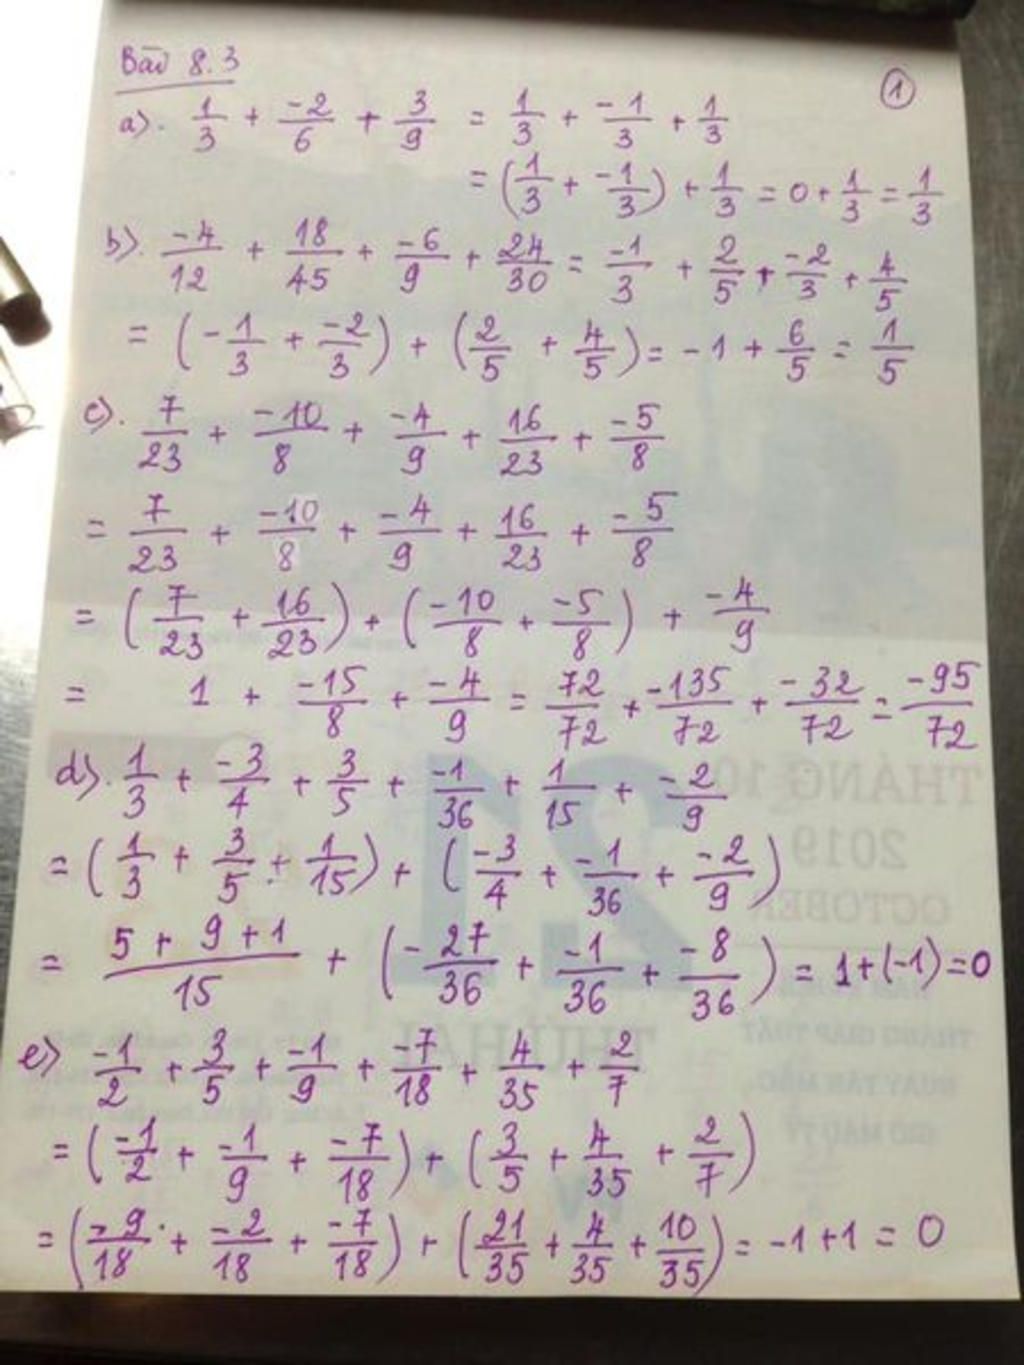 Bài 8.3
①
a). 1/3 + -2/6 + 3/9 = 1/3 + -1/3 + 1/3
= (1/3 + -1/3) + 1/3 = 0 + 1/3 = 1/3
b). -4/12 + 18/45 + -6/9 + 24/30 = -1/3 + 2/5 + -2/3 + 4/5
= (-1/3 + -2/3) + (2/5 + 4/5) = -1 + 6/5 = 1/5
c). 7/23 + -10/8 + -4/9 + 16/23 + -5/8
= 7/23 + -10/8 + -4/9 + 16/23 + -5/8
= (7/23 + 16/23) + (-10/8 + -5/8) + -4/9
= 1 + -15/8 + -4/9 = 72/72 + -135/72 + -32/72 = -95/72
d). 1/3 + -3/4 + 3/5 + -1/36 + 1/15 + -2/9
= (1/3 + 3/5 + 1/15) + (-3/4 + -1/36 + -2/9)
= 5 + 9 + 1/15 + (-27/36 + -1/36 + -8/36) = 1 + (-1) = 0
e) -1/2 + 3/5 + -1/9 + -7/18 + 4/35 + 2/7
= (-1/2 + -1/9 + -7/18) + (3/5 + 4/35 + 2/7)
= (-9/18 + -2/18 + -7/18) + (21/35 + 4/35 + 10/35) = -1 + 1 = 0
21
THÁNG 10
2019
OCTOBER
THỨ HAI